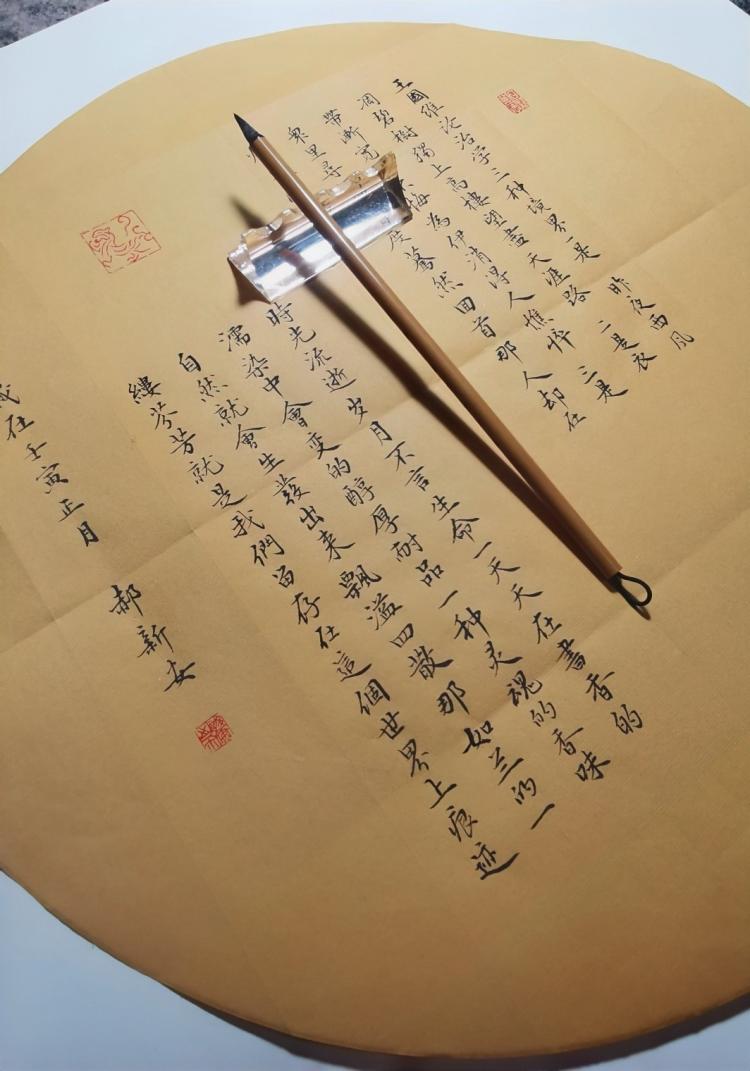 王國维论治学三种境界一是 昨夜西风
凋碧樹獨上高樓望盡天涯路 二是衣
帶漸宽 悔為伊消得人憔悴 三是
眾里尋 度蓦然回首那人却在
時光流逝岁月不言生命一天天在書香的
濡染中會变的醇厚耐品一种灵魂的香味
自然就會生發出来飄溢四散那如兰的一
縷芬芳就是我們留存在這個世界上痕迹
在壬寅正月 郝新